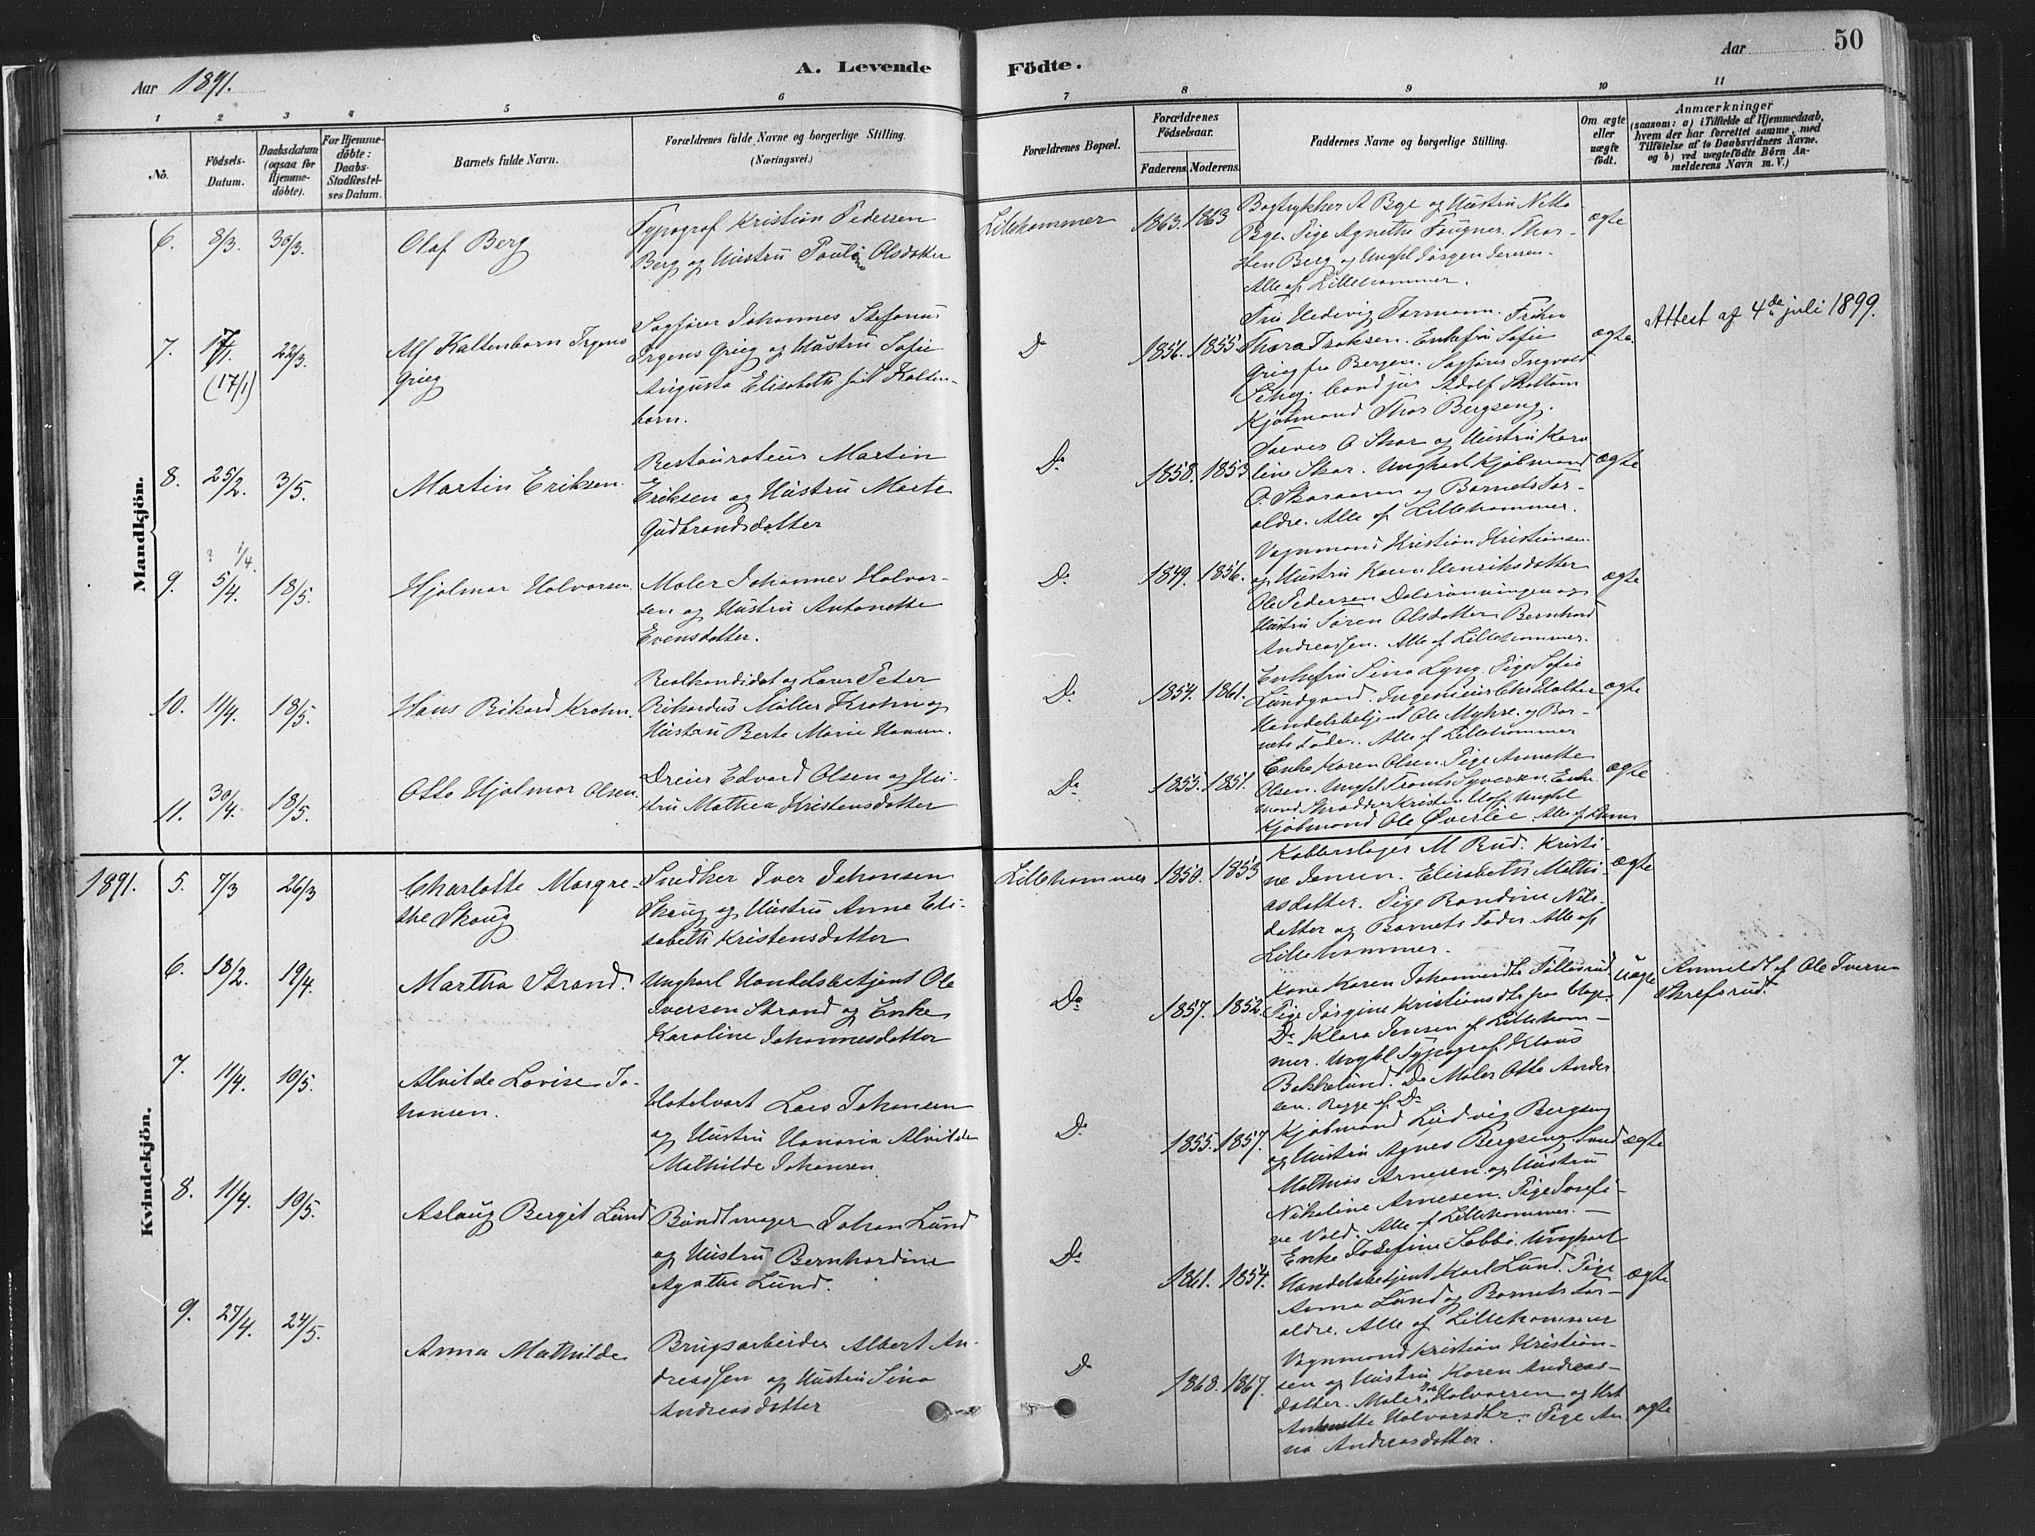 Aar 1891.
A. Levende Födte.
Aar
50
1 2 3 4 5 6 7 8 9 10 11
No.
Födsels-Datum.
Daabsdatum (ogsaa for Hjemmedöbte).
For Hjemmedöbte: Daabs-Stadfæstelses Datum.
Barnets fulde Navn.
Forældrenes fulde Navne og borgerlige Stilling.
(Næringsvei.)
Forældrenes Bopæl.
Forældrenes Födselsaar.
Faderens. Moderens.
Faddernes Navne og borgerlige Stilling.
Om ægte eller uægte födt.
Anmærkninger
(saasom: a) i Tilfælde af Hjemmedaab,
hvem der har forrettet samme, med
Tilföielse af to Daabsvidners Navne.
og b) ved uægtefödte Börn Anmelderens Navn m. V.)
Mandkjön.
6. 8/3. 30/3. Olaf Berg
Typograf Kristian Pedersen
Berg og Hustru Pauline Olsdatter
Lillehammer 1863. 1863
Bogtrykker A Bye og Hustru Nikka
Bye. Pige Agnethe Fougner. Thor-
sten Berg og Ungkl Jørgen Jensen.
Alle af Lillehammer.
ægte
7. 17/1 (17/1) 22/3. Alf Kaltenborn Irgens
Grieg
Sagfører Johannes Stefanus
Irgens Grieg og Hustru Sofie
Augusta Elisabeth født Kalten-
born.
Do 1856. 1855
Fru Hedevig Tormann. Frøken
Thora Isaksen. Enkefru Sofie
Grieg fra Bergen. Sagfører Ingvald
cand jur Adolf
Kjøbmand Thor Bergseng.
ægte.
Attest af 4de juli 1899.
8. 25/2. 3/5. Martin Eriksen.
Restaurateur Martin
Eriksen og Hustru Marte
Gudbrandsdatter
Do 1858. 1853
O Skar og Hustru Karo
line Skar. Ungkarl Kjøbmand
O. Skaraasen og Barnets For-
ældre. Alle af Lillehammer.
ægte
9. 5/4. ? 1/4. 18/5. Hjalmar Halvorsen
Maler Johannes Halvor-
sen og Hustru Antonette
Evensdatter.
Do 1849. 1856.
Vognmand Kristian Kristiansen
og Hustru Karen Henriksdatter
Ole Pedersen Dalsrønningen og
Hustru Søren Olsdatter Bernhard
Andreassen. Alle af Lillehammer.
ægte
10. 11/4. 18/5. Hans Rikard Krohn.
Realkandidat og Lærer Peter
Rikardus Møller Krohn og
Hustru Berte Marie Hansen.
Do. 1854. 1861.
Enkefru Sina Lyng. Pige Sofie
Lundgaard. Ingeniør Chr Holter
Handelsbetjent Ole Myhre og Bar-
nets Fader. Alle af Lillehammer
ægte
11. 30/4. 18/5. Otto Hjalmar Olsen
Dreier Edvard Olsen og Hu-
stru Mathea Kristensdatter
Do 1855. 1851.
Enke Karen Olsen. Pige Annette
Olsen. Ungkl Frants Syversen. Enke
mand Skrædder Kristen Ungkl
Kjøbmand Ole Øverlie. Alle af
ægte
1891.
Kvindekjön.
5. 7/3 26/3 Charlotte Margre
the Skoug
Snedker Iver Johansen
Skoug og Hustru Anne Eli-
sabeth Kristensdatter
Lillehammer 1850. 1853
Kobberslager M Rud. Kristi-
ne Jensen. Elisabeth Mathi-
asdatter. Pige Randine Nils-
datter og Barnets Fader. Alle af
Lillehammer.
ægte
6. 18/2. 19/4. Martha Strand.
Ungkarl Handelsbetjent Ole
Iversen Strand og Enke
Karoline Johannesdatter
Do 1857. 1852.
Kone Karen Johannesdtr
Pige Jørgine Kristiansdtr paa
Do Klara Jensen af Lilleham-
mer. Ungkl Typograf Klaus
Bakkelund. Do Maler Otto Ander
sen. Begge af Do
Uægte
Anmeldt af Ole Iversen
Skrefsrud.
7. 11/4. 10/5. Alvilde Lovise Jo-
hansen.
Hotelvært Lars Johansen
og Hustru Hanaria Alvilde
Mathilde Johansen
Do 1855. 1857.
Kjøbmand Ludvig Bergseng
og Hustru Agnes Bergseng. Smed
Mathias Arnesen og Hustru
Nikoline Arnesen. Pige Josefi-
ne Vold. Alle af Lillehammer.
ægte
8. 11/4. 10/5. Aslaug Bergit Lund
Bundtmager Johan Lund
og Hustru Bernhardine
Agathe Lund.
Do 1861. 1854.
Enke Josefine Ungkarl
Handelsbetjent Karl Lund. Pige
Anna Lund og Barnets For-
ældre. Alle af Lillehammer
ægte
9. 27/4. 24/5. Anna Mathilde
Brugsarbeider Albert An-
dreassen og Hustru Sina
Andreasdatter
Do 1868. 1867.
Vognmand Kristian Kristian-
sen og Hustru Karen Andreas-
datter. Maler Joh Halvorsen og Hst
Antonette Halvorsdtr. Pige An
na Andreasdatter.
ægte